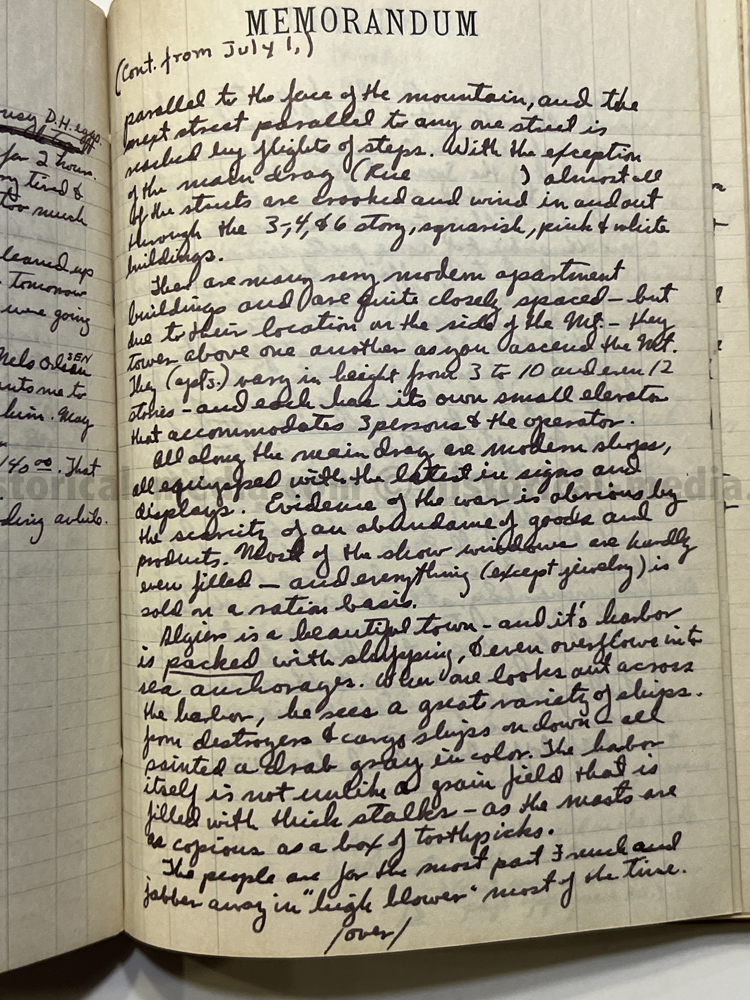 MEMORANDUM
(Cont. from July 1,)
parallel to the face of the mountain, and the
next street parallel to any one street is
reached by flights of steps. With the exception
of the main drag (Rue ) almost all
of the streets are crooked and wind in and out
through the 3-, 4, & 6 story, squarish, pink & white
buildings.
There are many very modern apartment
buildings and are quite closely spaced – but
due to their location on the side of the Mt. – they
tower above one another as you ascend the Mt.
They (apts.) vary in height from 3 to 10 and even 12
stories – and each has its own small elevator
that accommodates 3 persons & the operator.
All along the main drag are modern shops,
all equipped with the latest in signs and
displays. Evidence of the war is obvious by
the scarcity of an abundance of goods and
products. Most of the show windows are hardly
even filled – and everything (except jewelry) is
sold on a ration basis.
Algiers is a beautiful town – and it's harbor
is packed with shipping, & even overflows into
sea anchorages. When one looks out across
the harbor, he sees a great variety of ships.
from destroyers & cargo ships on down – all
painted a drab gray in color. The harbor
itself is not unlike a grain field that is
filled with thick stalks – as the masts are
as copious as a box of toothpicks.
The people are for the most part French and
jabber away in "high blower" most of the time.
/over/
D.H.
for 2 hours.
tired &
too much
cleaned up
tomorrow
were going
Nels Olsen
SEN
wants me to
him. May
140.00. That